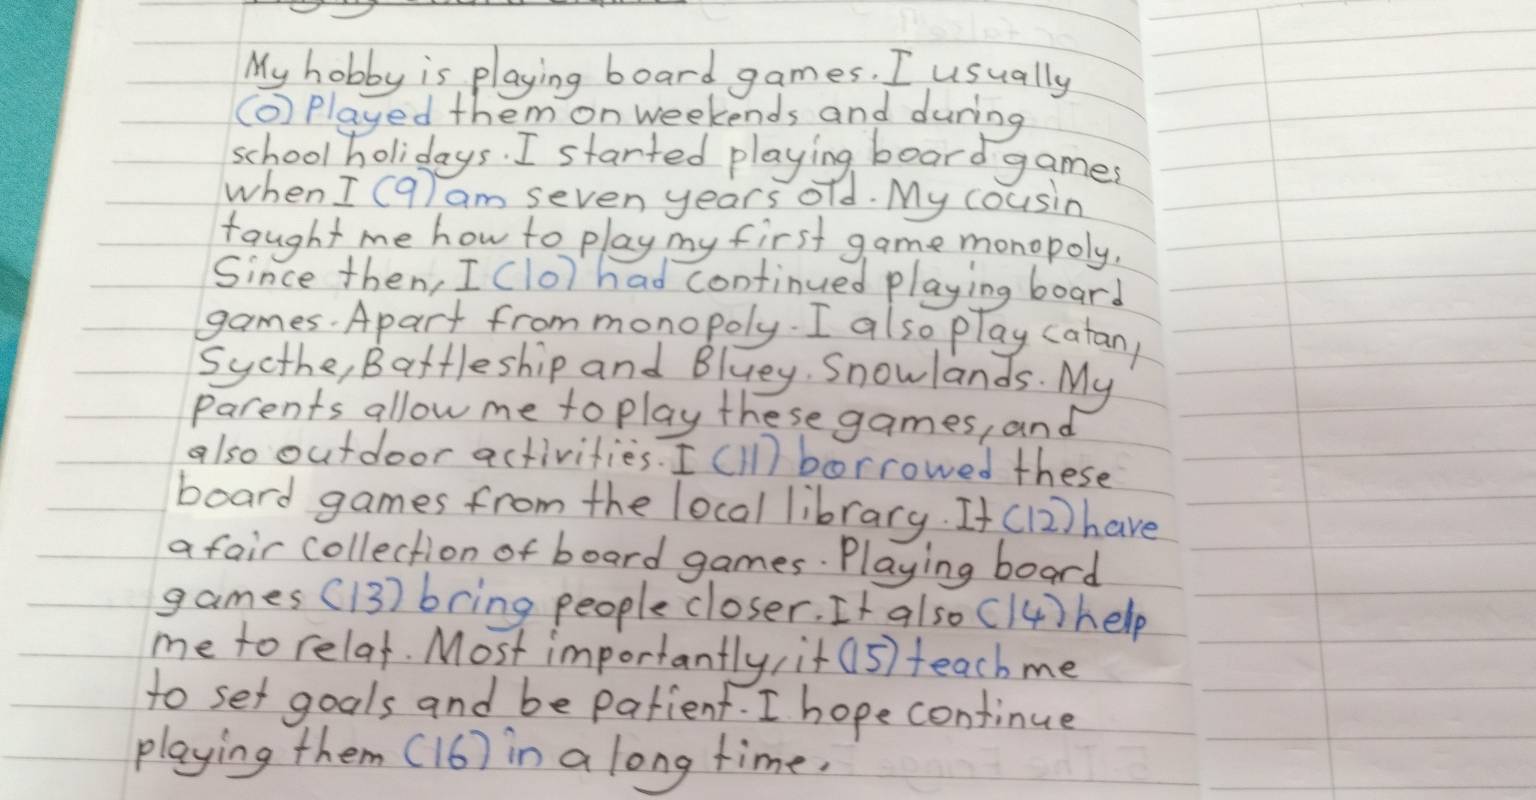 My hobby is playing board games. I usually
(0) Played them on weekends and during
school holidays. I started playing board games
when I (9) am seven years old. My cousin
taught me how to play my first game monopoly.
Since then, I (10) had continued playing board
games. Apart from monopoly. I also play catan,
Sycthe, Battleship and Bluey. Snowlands. My
parents allow me to play these games, and
also outdoor activities. I (11) borrowed these
board games from the local library. It (12) have
a fair collection of board games. Playing board
games (13) bring people closer. It also (14) help
me to relat. Most importantly, it (15) teach me
to set goals and be patient. I hope continue
playing them (16) in a long time.